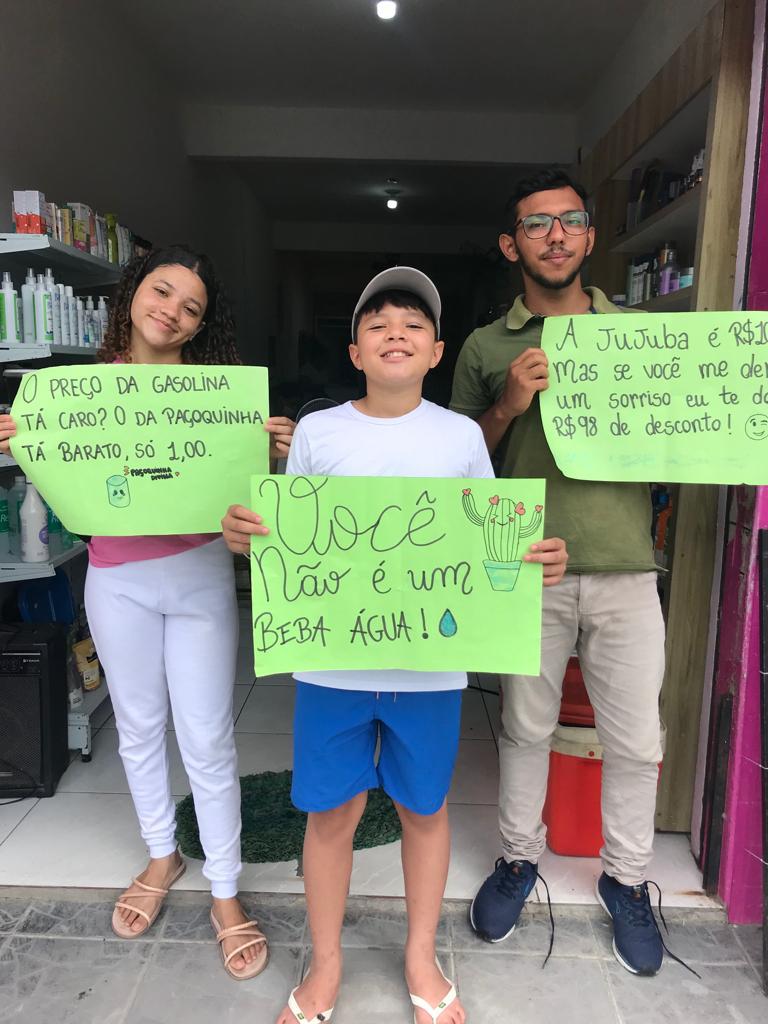 O PREÇO DA GASOLINA
TÁ CARO? O DA PAÇOQUINHA
TÁ BARATO, SÓ 1,00.
PAÇOQUINHA
DIVINA
Você
Não é um
BEBA ÁGUA!
A JUJUBA é R$10
Mas se você me der
um sorriso eu te do
R$98 de desconto!